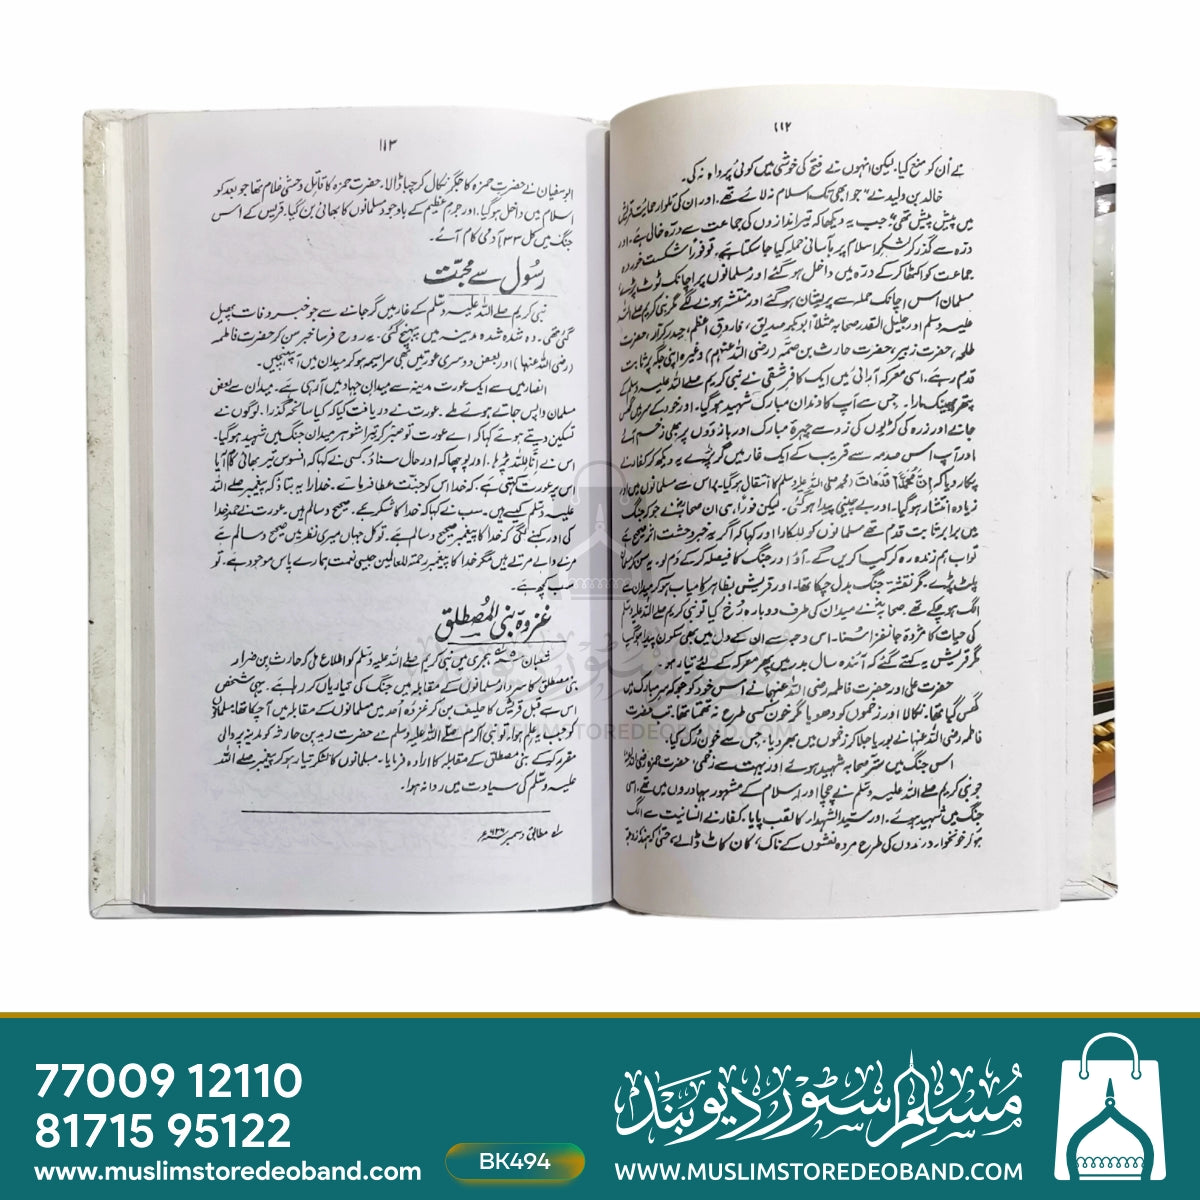 ۱۱۲
نے اُن کو منع کیا، لیکن انہوں نے فتح کی خوشی میں کوئی پرواہ نہ کی۔
خالد بن ولید نے "جو ابھی تک اسلام نہ لائے تھے۔ اور ان کی تلوار حمایت قریش
میں پیش پیش تھی" جب یہ دیکھا کہ تیر اندازوں کی جماعت سے درّہ خالی ہے۔ اور
درّہ سے گذر کر لشکرِ اسلام پر بآسانی حملہ کیا جا سکتا ہے، تو فوراً شکست خوردہ
جماعت کو اکٹھا کر کے درّہ میں داخل ہو گئے اور مسلمانوں پر اچانک ٹوٹ پڑے۔
مسلمان اس اچانک حملہ سے پریشان ہو گئے اور منتشر ہونے لگے مگر نبی کریم صلے اللہ
علیہ وسلم اور جلیل القدر صحابہ مثلاً ابوبکر صدیق، فاروق اعظم، حیدر کرار، حضرت
طلحہ، حضرت زبیر، حضرت حارث بن صمّہ (رضی اللہ عنہم) وغیرہ اپنی جگہ پر ثابت
قدم رہے، اسی معرکہ آرائی میں ایک کافر شقی نے نبی کریم صلے اللہ علیہ وسلم کے
پتھر پھینک مارا۔ جس سے آپ کا دندان مبارک شہید ہو گیا۔ اور خود کے سر میں گھس
جانے اور زرہ کی کڑیوں کی زد سے چہرۂ مبارک اور بازوؤں پر بھی زخم آئے
اور آپ اس صدمہ سے قریب کے ایک غار میں گر پڑے یہ دیکھ کر کفار نے
پکار دیا کہ اِنَّ مُحَمَّدًا قَدْ مَاتَ (محمد صلی اللہ علیہ وسلم کا انتقال ہو گیا)۔ پر اس سے مسلمانوں میں اور
زیادہ انتشار ہو گیا۔ اور بے چینی پیدا ہو گئی۔ لیکن فوراً ہی ان صحابہؓ نے جو کہ جنگ
میں برابر ثابت قدم تھے مسلمانوں کو للکارا اور کہا کہ اگر یہ خبر وحشت اثر صحیح ہے
تو اب ہم زندہ رہ کر کیا کریں گے۔ آؤ! اور جنگ کا فیصلہ کر کے دم لو۔ یہ سن کر مسلمان
پلٹ پڑے۔ مگر نقشۂ جنگ بدل چکا تھا۔ اور قریش بظاہر کامیاب ہو کر میدان سے
الگ ہو چکے تھے۔ صحابہؓ نے میدان کی طرف دوبارہ رخ کیا تو نبی کریم صلے اللہ علیہ وسلم
کی حیات کا مژدۂ جانفزا سنا۔ اس وجہ سے ان کے دل میں بھی سکون پیدا ہو گیا
مگر قریش یہ کہتے گئے کہ آئندہ سال بدر میں پھر معرکہ کے لئے تیار ہو۔
حضرت علی اور حضرت فاطمہ رضی اللہ عنہما نے اس خود کو جو کہ سر مبارک میں
گھس گیا تھا۔ نکالا اور زخموں کو دھویا مگر خون کسی طرح نہ تھمتا تھا، تب حضرت
فاطمہ رضی اللہ عنہا نے بوریا جلا کر زخموں میں بھر دیا۔ جس سے خون رُک گیا۔
اس جنگ میں ستر صحابہ شہید ہوئے اور بہت سے زخمی، حضرت حمزہ رضی اللہ عنہ
جو نبی کریم صلے اللہ علیہ وسلم کے چچا اور اسلام کے مشہور بہادروں میں تھے، اسی
جنگ میں شہید ہوئے۔ اور سید الشہداء کا لقب پایا۔ کفار نے انسانیت سے الگ
ہو کر خونخوار درندوں کی طرح مردہ نعشوں کے ناک، کان کاٹ ڈالے، حتیٰ کہ ہندہ زوجہ
۱۱۳
ابوسفیان نے حضرت حمزہ کا جگر نکال کر چبا ڈالا، حضرت حمزہ کا قاتل وحشی غلام تھا جو بعد کو
اسلام میں داخل ہو گیا۔ اور جرم عظیم کے باوجود مسلمانوں کا بھائی بن گیا۔ قریش کے اس
جنگ میں کل ۳۳ آدمی کام آئے۔
رسُول سے محبّت
نبی کریم صلے اللہ علیہ وسلم کے غار میں گر جانے سے جو خبر وفات پھیل
گئی تھی۔ وہ شدہ شدہ مدینہ میں پہنچ گئی۔ یہ روح فرسا خبر سن کر حضرت فاطمہ
(رضی اللہ عنہا) اور بعض دوسری عورتیں بھی سراسیمہ ہو کر میدان میں آ پہنچیں۔
انصار میں سے ایک عورت مدینہ سے میدانِ جہاد میں آ رہی ہے۔ میدان سے بعض
مسلمان واپس جاتے ہوئے ملے۔ عورت نے دریافت کیا کہ کیا سانحہ گذرا۔ لوگوں نے
تسکین دیتے ہوئے کہا کہ اے عورت تو صبر کر تیرا شوہر میدان جنگ میں شہید ہو گیا۔
اس نے اِنّا للہ پڑھا۔ اور پوچھا کہ اور حال سناؤ کسی نے کہا کہ افسوس تیرا بھائی کام آیا
اس پر عورت کہتی ہے، کہ خدا اس کو جنت عطا فرمائے۔ خدارا یہ بتاؤ کہ پیغمبر صلے اللہ
علیہ وسلم کیسے ہیں۔ سب نے کہا کہ خدا کا شکر ہے۔ صحیح و سالم ہیں۔ عورت نے حمدِ خدا
کی اور کہنے لگی کہ خدا کا پیغمبر صحیح و سالم ہے۔ تو کل جہاں میری نظر میں صحیح و سالم ہے
مرنے والے مرتے ہیں مگر خدا کا پیغمبر رحمۃ للعالمین جیسی نعمت ہمارے پاس موجود ہے، تو
سب کچھ ہے۔
غزوۂ بنی المُصطلق
شعبان ۵ ہجری میں نبی کریم صلے اللہ علیہ وسلم کو اطلاع ملی کہ حارث بن ضرار
بنی مصطلق کا سردار مسلمانوں کے مقابلہ میں جنگ کی تیاریاں کر رہا ہے۔ یہی شخص
اس سے قبل قریش کا حلیف بن کر غزوۂ اُحد میں مسلمانوں کے مقابلہ میں آ چکا تھا، مسلمانوں
کو جب یہ علم ہوا، تو نبی اکرم صلے اللہ علیہ وسلم نے حضرت زید بن حارثہ کو مدینہ پر والی
مقرر کر کے بنی مصطلق کے مقابلہ کا ارادہ فرمایا۔ مسلمانوں کا لشکر تیار ہو کر پیغمبر صلے اللہ
علیہ وسلم کی سیادت میں روانہ ہوا۔
لہ مطابق دسمبر ۶۲۶ء
WWW.MUSLIMSTOREDEOBAND.COM
77009 12110
81715 95122
www.muslimstoredeoband.com
BK494
مسلم سٹور دیوبند
WWW.MUSLIMSTOREDEOBAND.COM